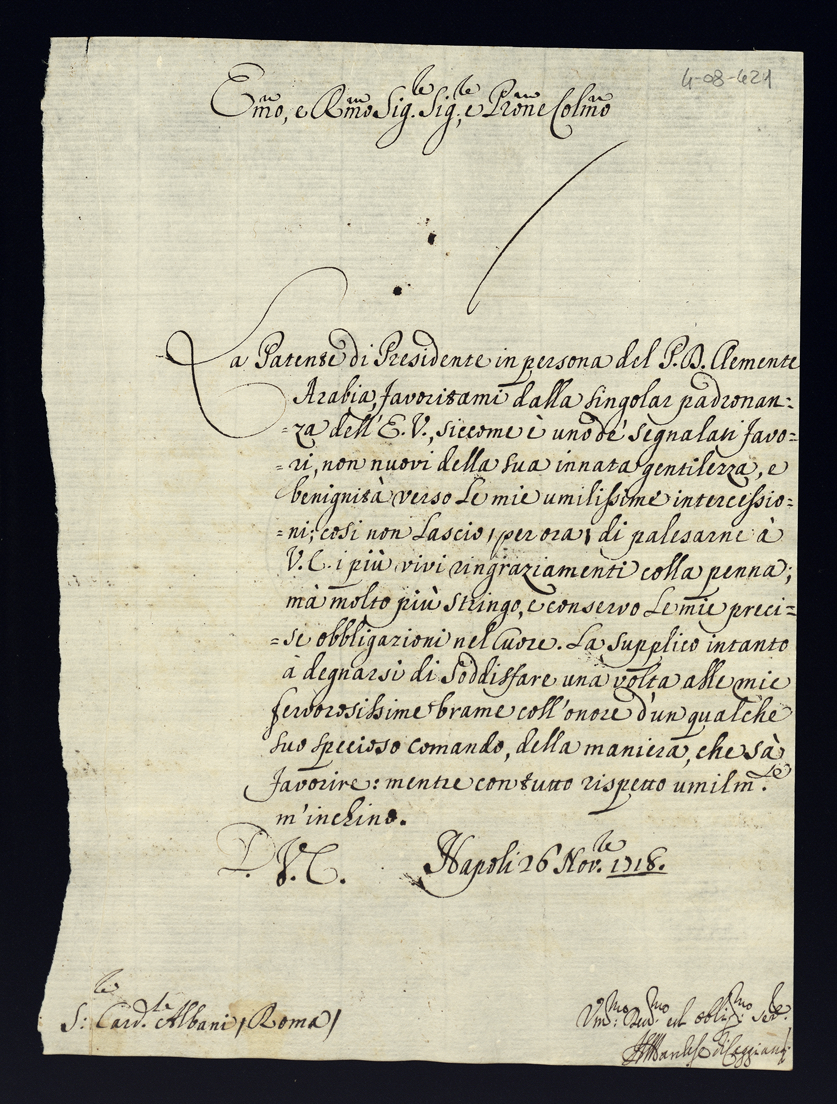 4-08-421
Emo, e Rmo Sig.re Sig.re, e Prone Colmo
La Patente di Presidente in persona del P. D. Clemente
Arabia, favoritami dalla singolar padronan=
=za dell' E. V., siccome è uno de' segnalati favo=
=ri, non nuovi della sua innata gentilezza, e
benignità verso Le mie umilissime intercessio=
=ni; così non Lascio, per ora, di palesarne à
V. E. i più vivi ringraziamenti colla penna;
mà molto più stringo, e conservo Le mie preci=
=se obbligazioni nel Cuore. La supplico intanto
à degnarsi di soddisfare una volta alle mie
fervorosissime brame coll' onore d'un qualche
suo specioso comando, della maniera, che sà
favorire: mentre con tutto rispetto umilm.te
m'inchino.
D. V. E. Napoli 26 Nov.re 1718.
S.r Card.le Albani, Roma
Um.mo Dev.mo ed obli.mo